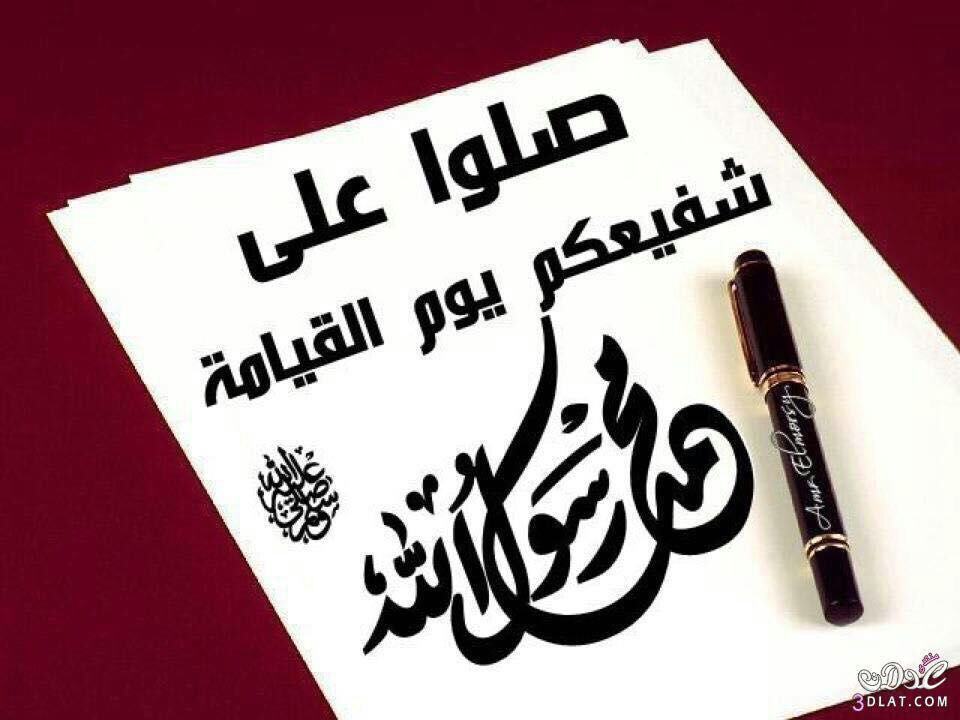 صلوا على
شفيعكم يوم القيامة
محمد رسول الله
صلى الله عليه وسلم
Amr Elmorsy
منتدى عدلات
3DLAT.COM